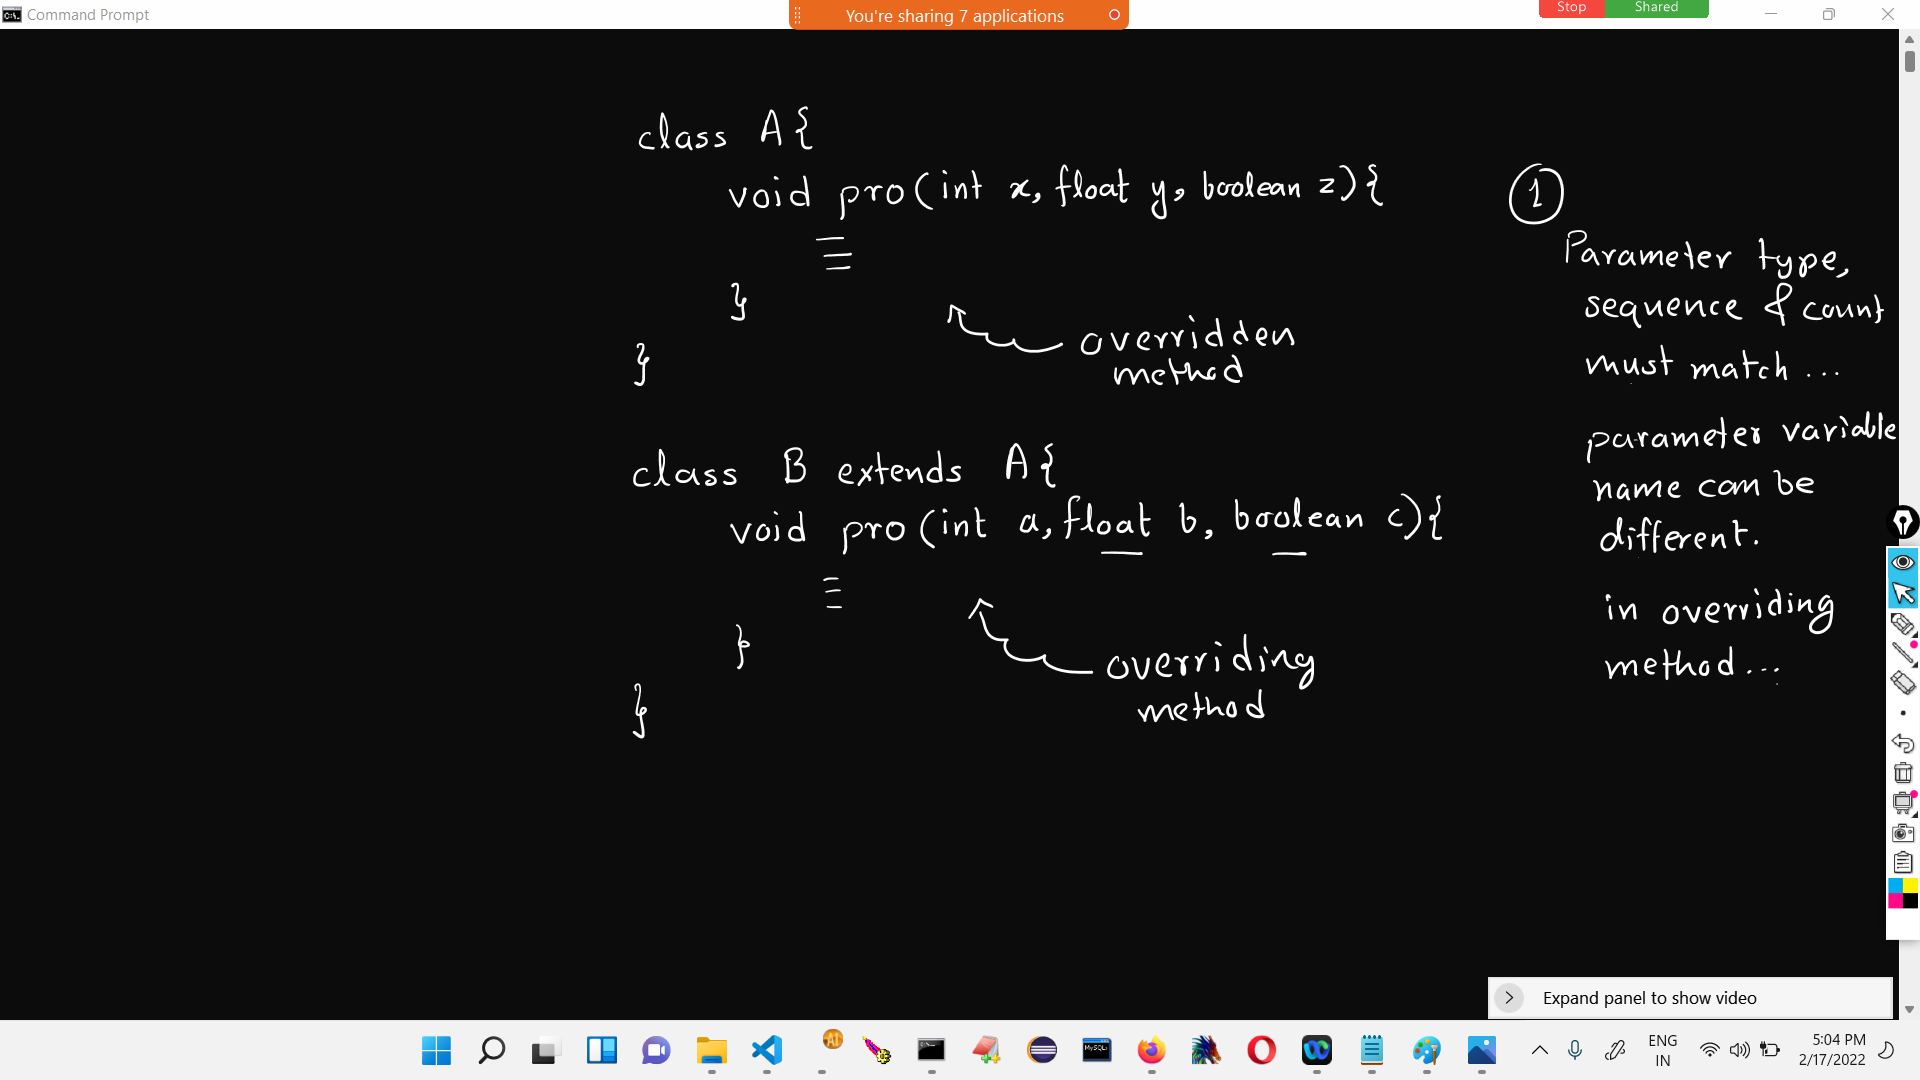 Command Prompt
You're sharing 7 applications
Stop Shared
class A{
void pro(int x, float y, boolean z){
}
overridden
method
}
class B extends A{
void pro(int a, float b, boolean c){
}
overriding
method
}
1
Parameter type,
sequence & count
must match...
parameter variable
name can be
different.
in overriding
method...
Expand panel to show video
AI
MySQL
ENG
IN
5:04 PM
2/17/2022